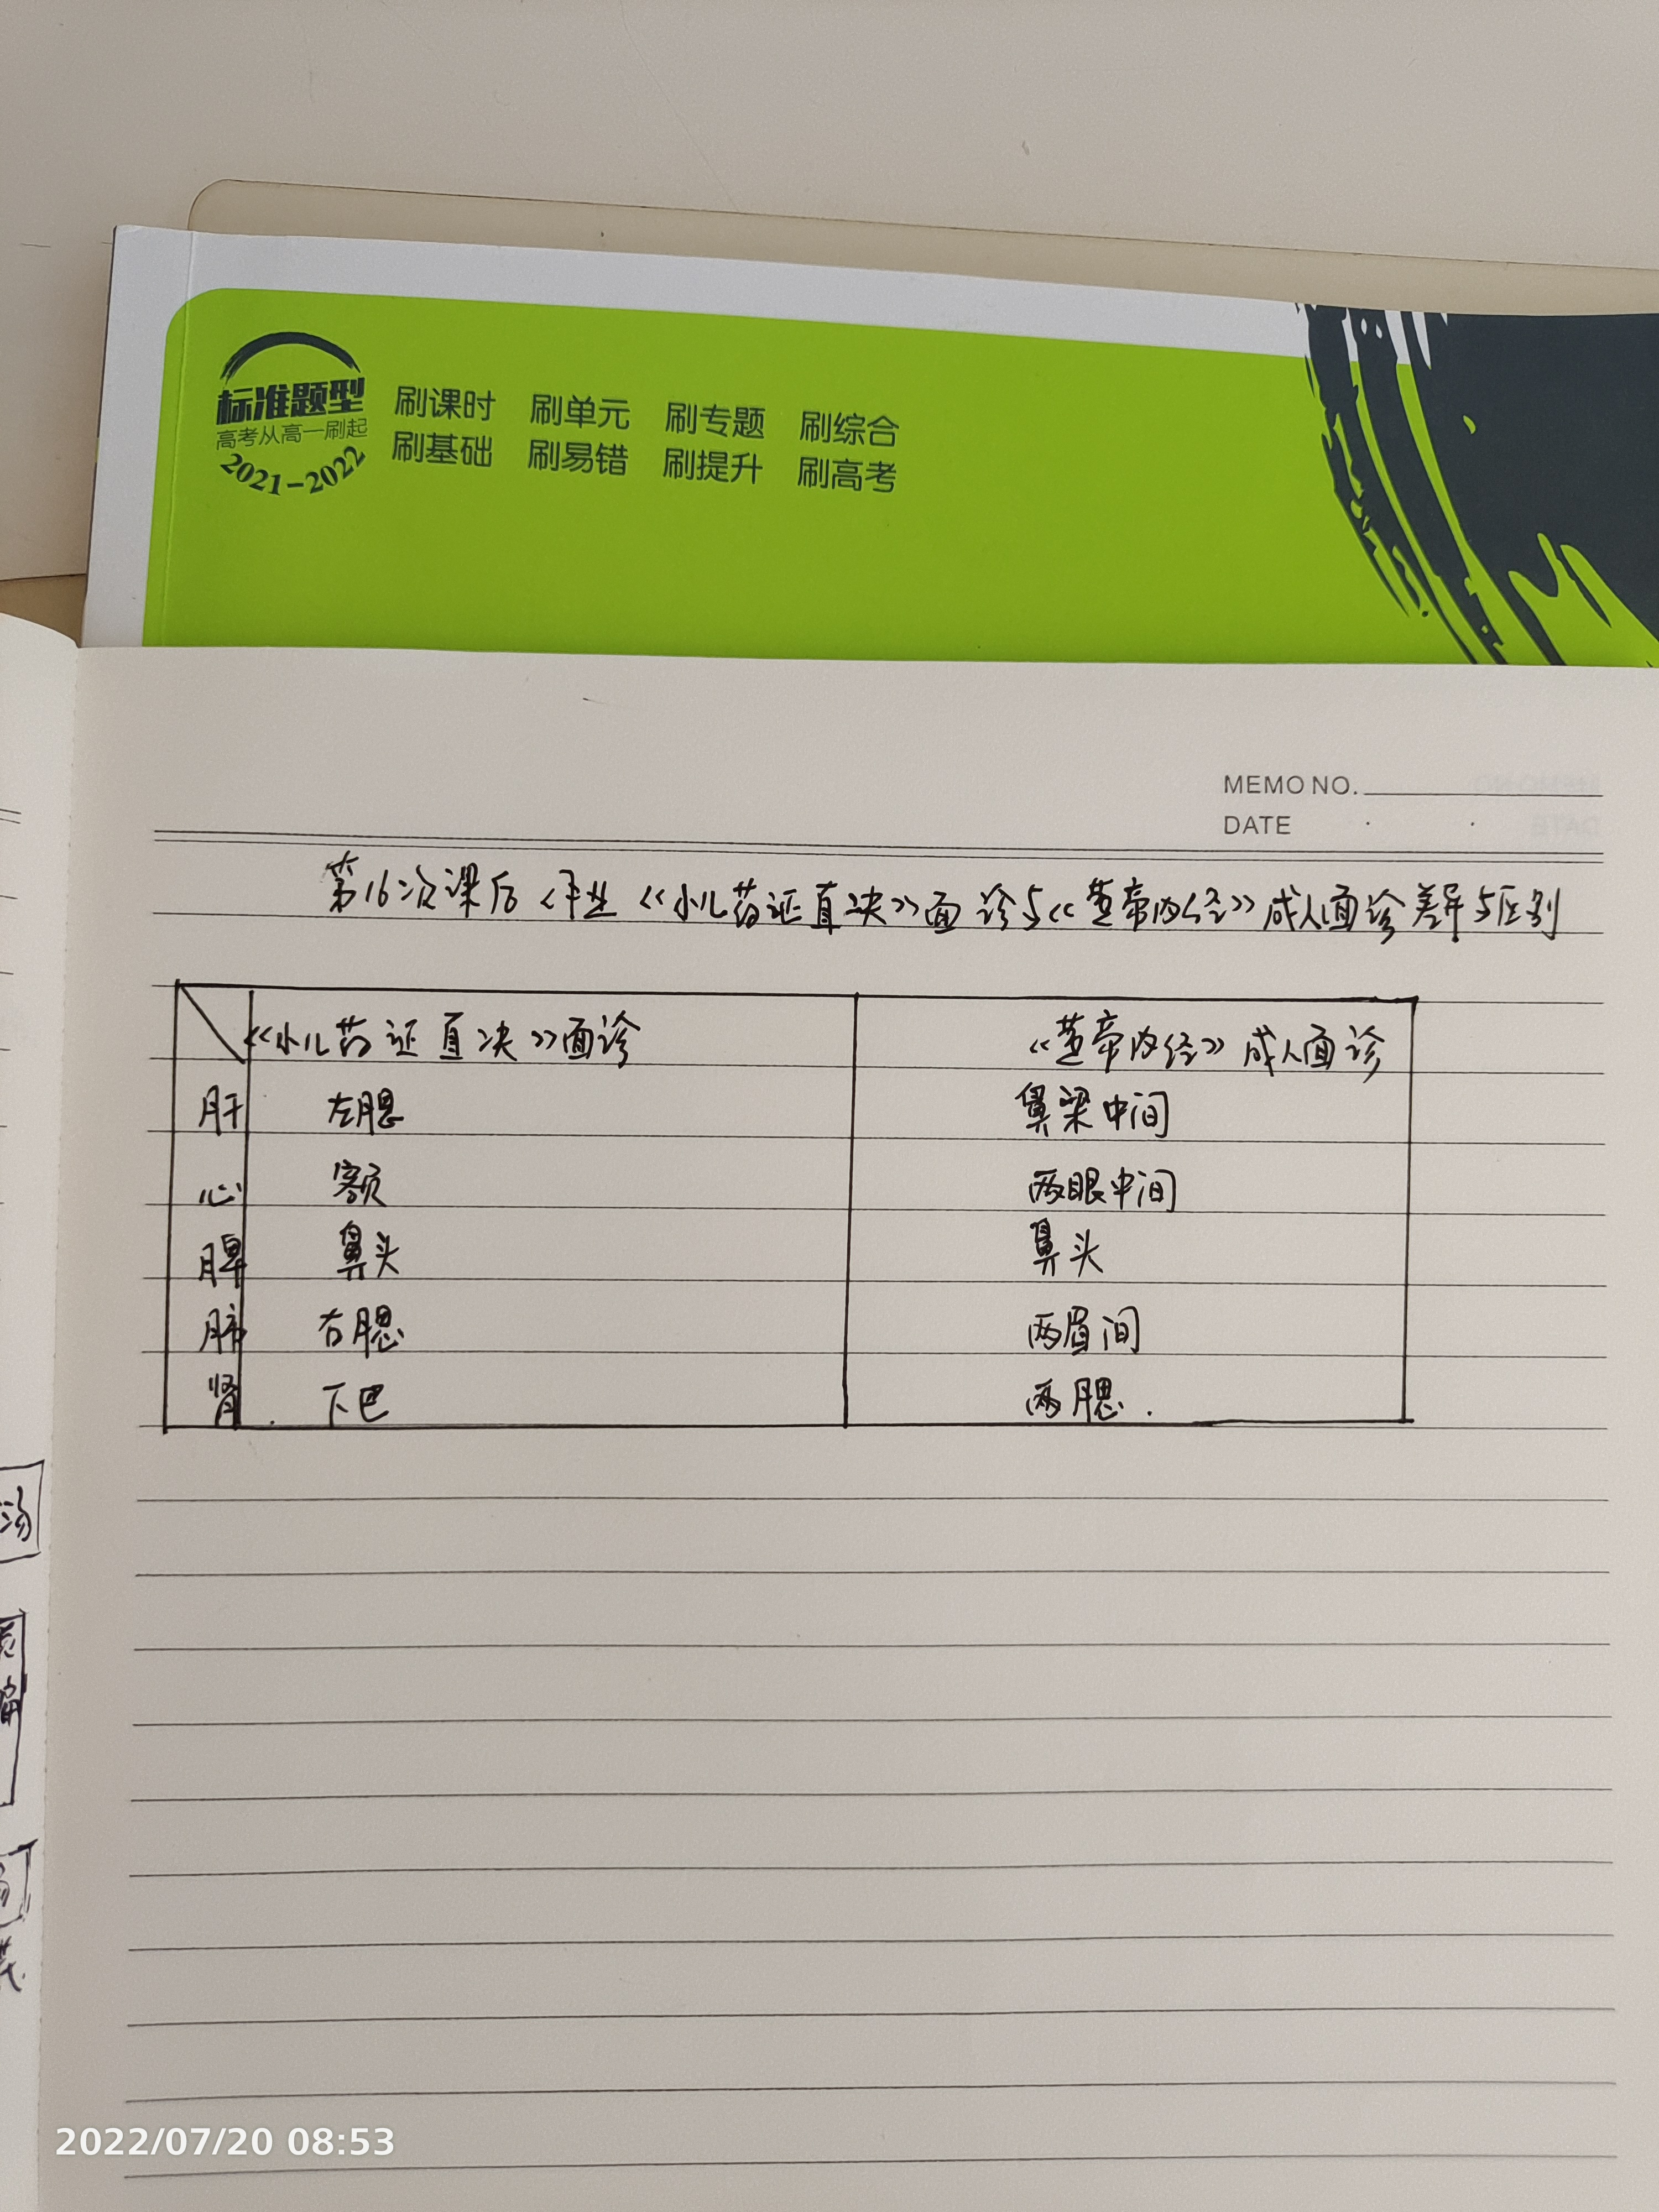 标准题型
高考从高一刷起
2021-2022
刷课时 刷单元 刷专题 刷综合
刷基础 刷易错 刷提升 刷高考
MEMO NO.
DATE
第16次课后作业《小儿药证直决》面诊与《黄帝内经》成人面诊差异与区别
《小儿药证直决》面诊 《黄帝内经》成人面诊
肝 左腮 鼻梁中间
心 额 两眼中间
脾 鼻头 鼻头
肺 右腮 两眉间
肾. 下巴 两腮.
汤
2022/07/20 08:53